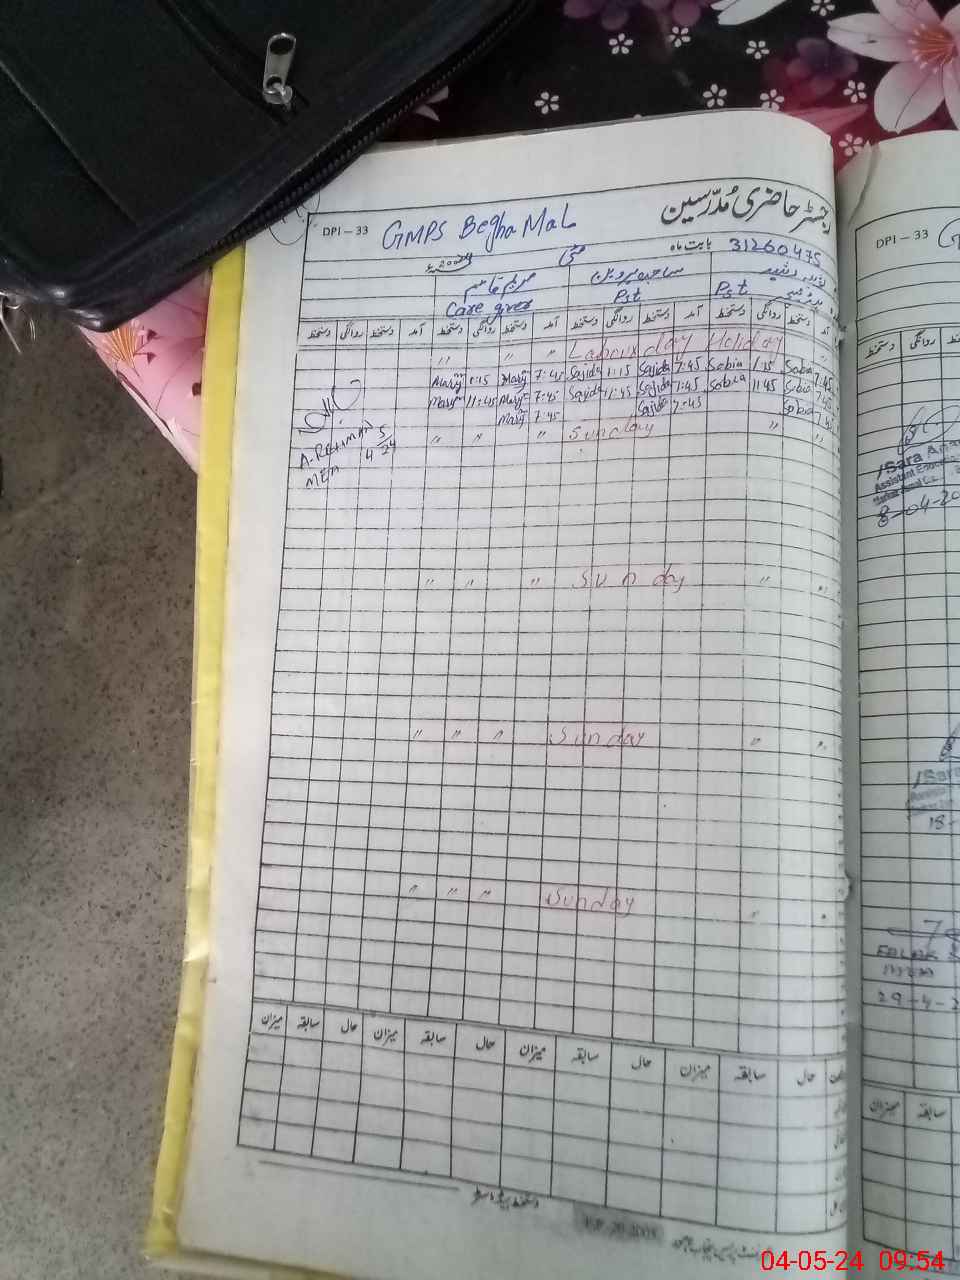 رجسٹر حاضری مُدرّسین
DPI – 33 GMPS Begha Mal
31260475 بابت ماہ مئی
مریم قاسم ساجدہ پروین
Care giver Pst Pst
آمد دستخط روانگی دستخط آمد دستخط روانگی دستخط آمد دستخط روانگی دستخط دستخط روانگی دستخط
" " " Labour day Holiday "
Mary 1:15 Mary 7:45 Sajida 1:15 Sajida 7:45 Sobia 1:15 Sobia 7:45
Mary 11:45 Mary 7:45 Sajida 11:45 Sajida 7:45 Sobia 11:45 Sobia 7:45
Mary 7:45 Sajida 7:45 Sobia 7:45
" " " Sunday " "
A. REHMAN
MEA
4 5/24
" " " Sunday " "
" " " Sunday " "
" " " Sunday " "
حال سابقہ میزان حال سابقہ میزان حال سابقہ میزان حال سابقہ میزان
دستخط ہیڈ ماسٹر
DPI – 33 G
دستخط روانگی
Isara
Assistant
8-04-20
Isara
18-
MEA
29-4-2
میزان سابقہ
04-05-24 09:54